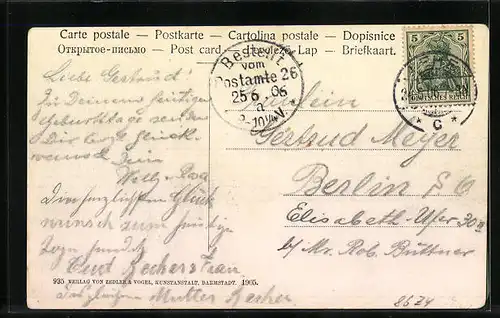 Carte postale – Postkarte – Cartolina postale – Dopisnice
Открытое-письмо – Post card – Levelező-Lap – Briefkaart.
5 5
DEUTSCHES REICH
Bestellt
vom
Postamte 26
25 6 06
* C *
Liebe Gertrud!
Zu Deinem heutigen
Geburtstage senden
Dir
Glück-
wunsch Dein
Willy
Die herzlichsten Glück
wünsch zum heutigen
Tage sendet
Curt Bechers Frau
Desgleichen Mutter Becher
Fräulein
Gertrud Meyer
Berlin S O
Elisabeth Ufer 30
b/ Mr. Rob. Büttner
935 VERLAG VON ZEDLER & VOGEL, KUNSTANSTALT, DARMSTADT. 1905.
8624